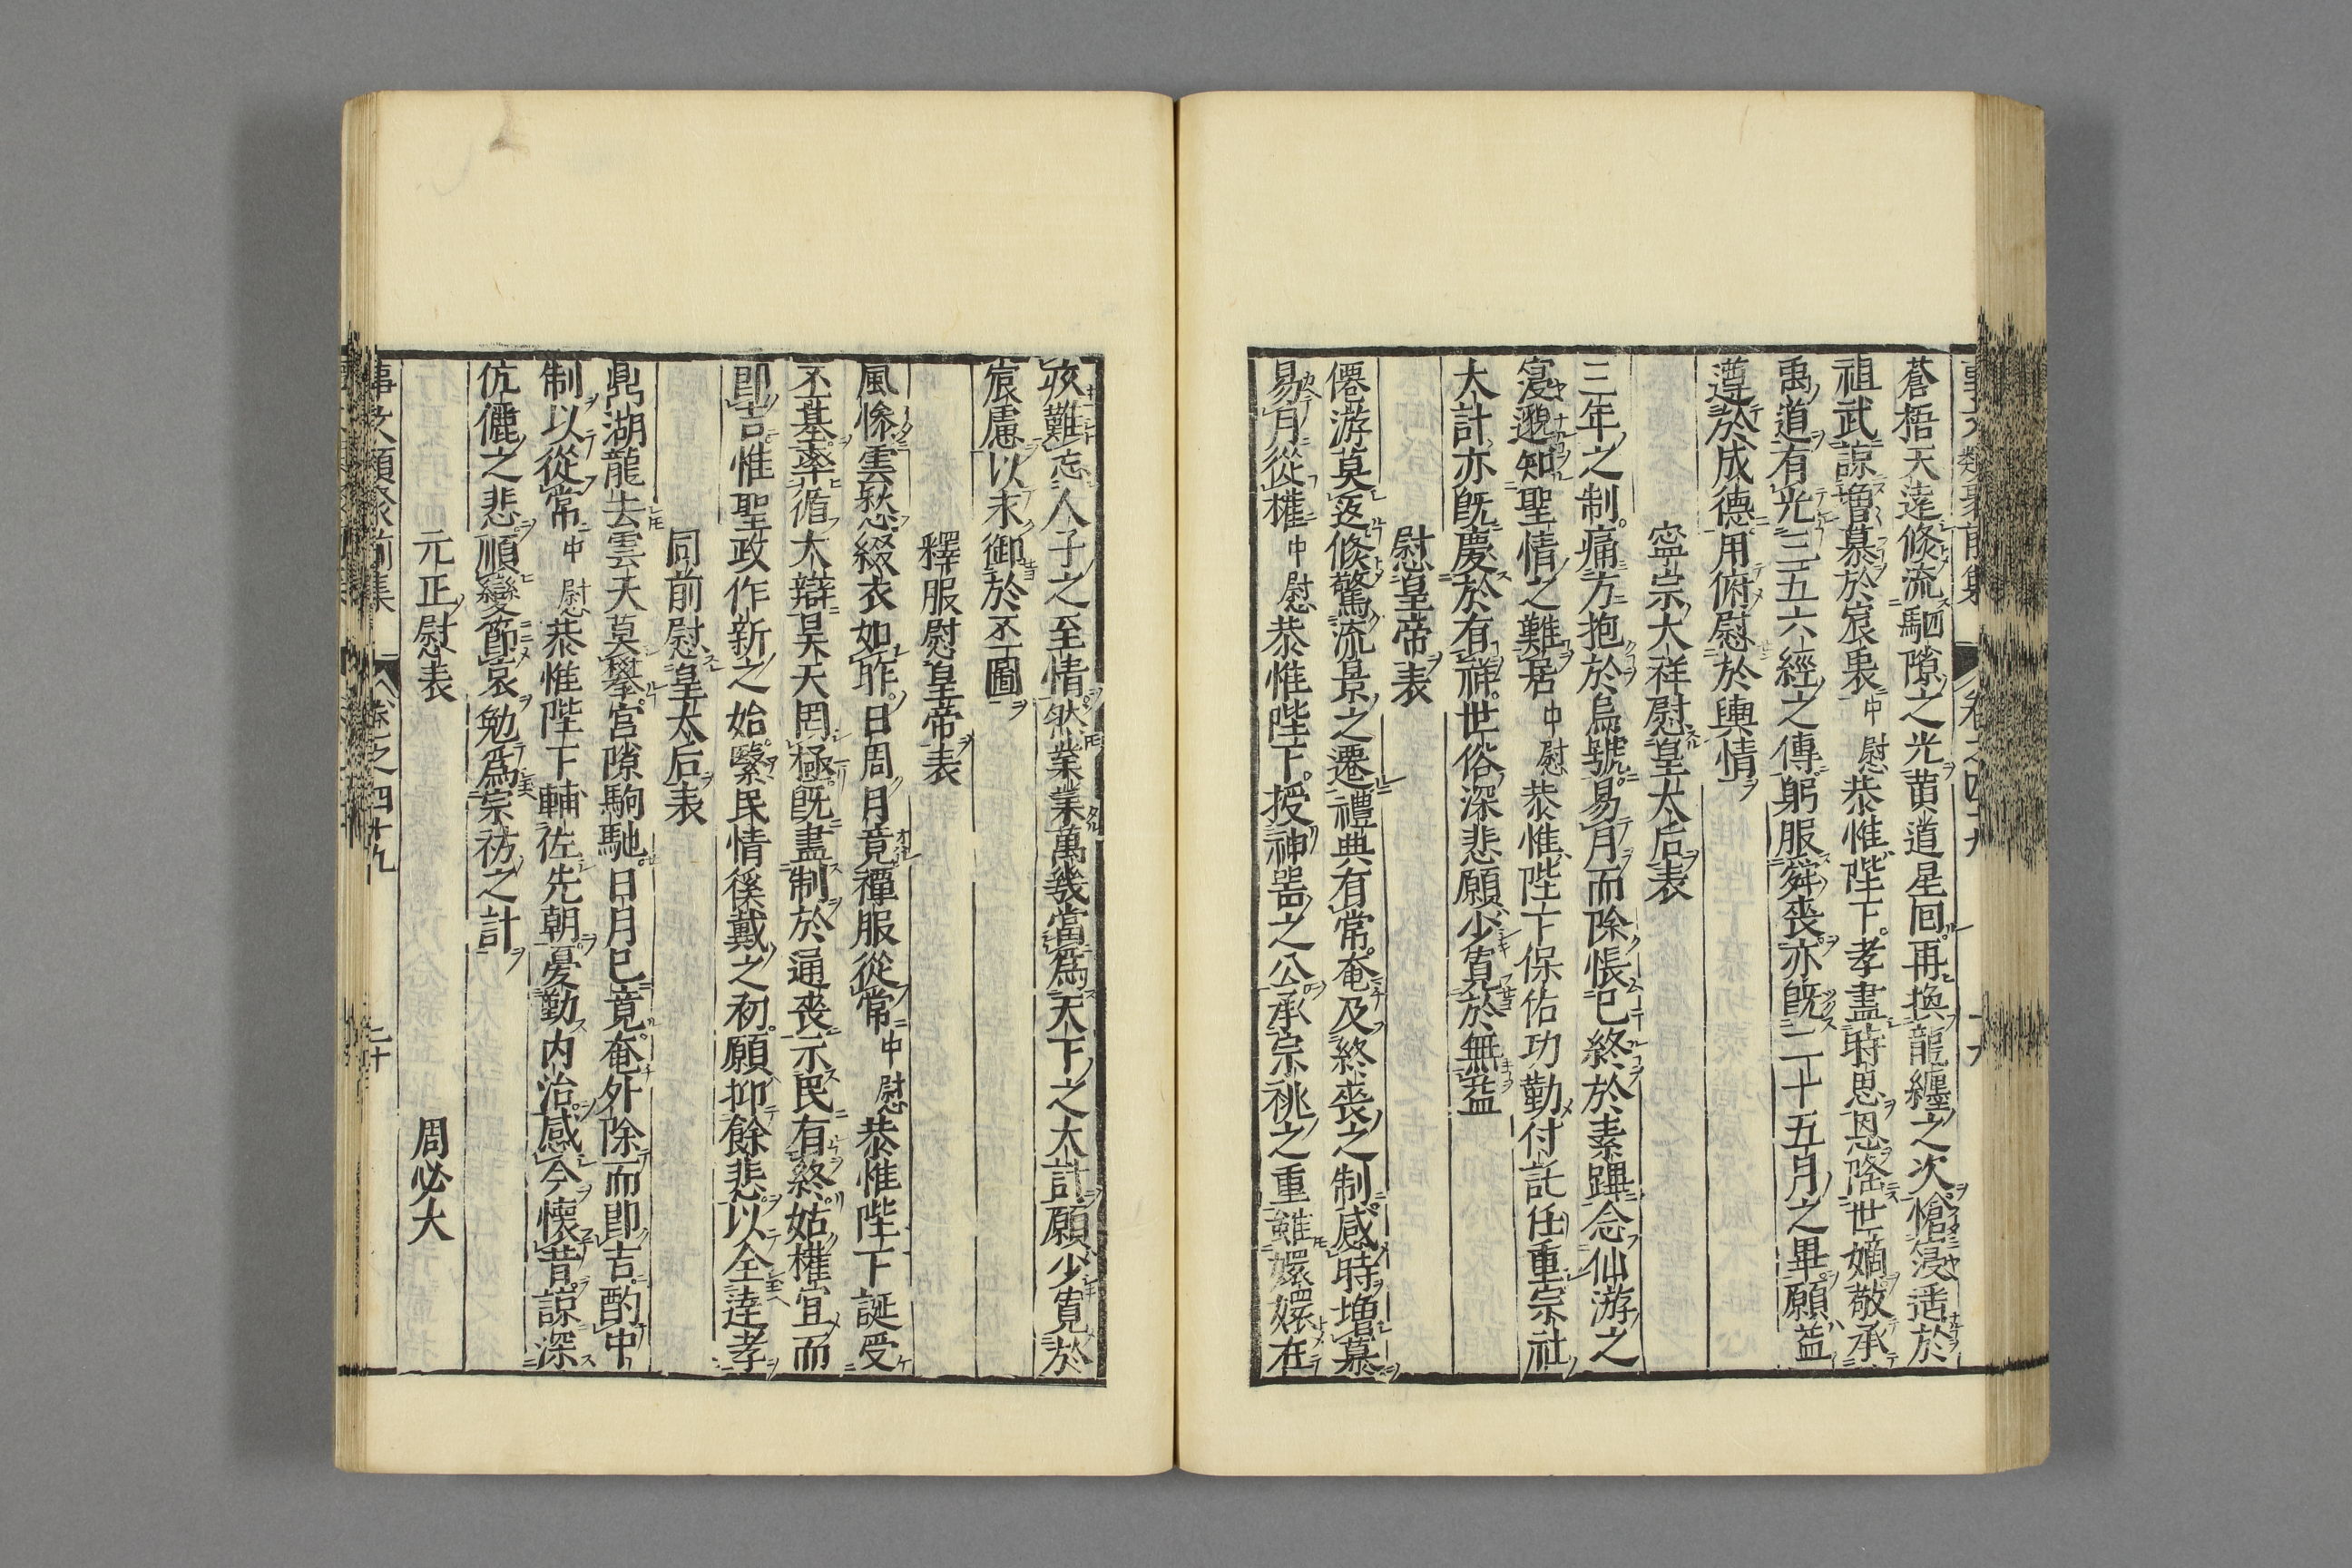 蒼梧天遠倏流駟隙之光黄道星囘再換龍纏之次愴寖逺於
祖武諒增慕於宸衷中慰恭惟陛下孝盡時思恩隆世嫡敬承
禹道有光三五六經之傳躬服舜喪亦旣二十五月之畢願益
遵於成德用俯慰於輿情
寧宗大祥慰皇太后表
三年之制痛方抱於烏號易月而除悵已終於素韠念仙游之
寖邈知聖情之難居中慰恭惟陛下保佑功勤付託任重宗社
大計亦旣慶於有祥世俗深悲願少寬於無益
慰皇帝表
僊游莫返倏驚流景之遷禮典有常奄及終喪之制感時增慕
易月從權中慰恭惟陛下授神噐之公承宗祧之重雖嬛嬛在
疚難忘人子之至情然業業萬幾當爲天下之大計願少寬於
宸慮以永御於丕圖
釋服慰皇帝表
風慘雲愁綴衣如昨日周月竟禫服從常中慰恭惟陛下誕受
丕基率循大辯昊天罔極旣盡制於通喪示民有終姑權宜而
即吉惟聖政作新之始繄民情徯戴之初願抑餘悲以全逹孝
同前慰皇太后表
鼎湖龍去雲天莫攀宫隙駒馳日月已竟奄外除而即吉酌中
制以從常中慰恭惟陛下輔佐先朝憂勤内治感今懷昔諒深
伉儷之悲順變節哀勉爲宗祊之計
元正慰表　周必大
事文類聚前集　卷之四十九　二十